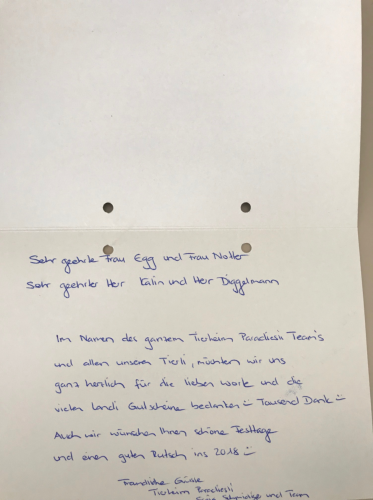 Sehr geehrte Frau Egg und Frau Notter
Sehr geehrter Herr Kälin und Herr Diggelmann
Im Namen des ganzem Tierheim Paradiesli Team's
und allen unseren Tierli, möchten wir uns
ganz herzlich für die lieben Worte und die
vielen Landi Gutscheine bedanken :) Tausend Dank :)
Auch wir wünschen Ihnen schöne Festtage
und einen guten Rutsch ins 2018 :)
Freundliche Grüsse
Tierheim Paradiesli
und Team